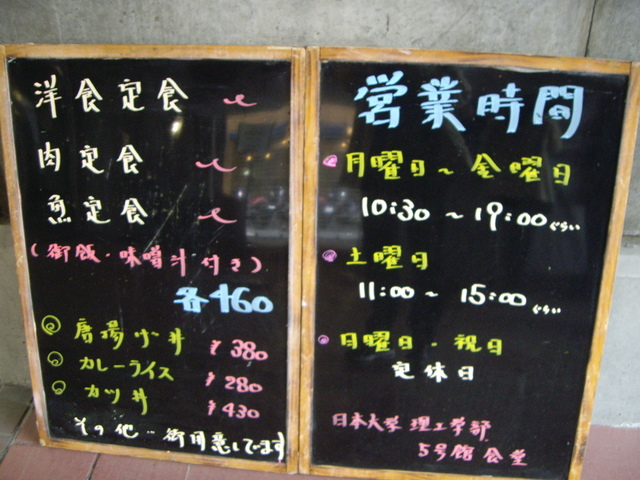 洋食定食
肉定食
魚定食
(御飯・味噌汁付き)
各460
唐揚げ丼 ¥380
カレーライス ¥280
カツ丼 ¥430
その他御用意してます
営業時間
月曜日～金曜日
10:30～19:00ぐらい
土曜日
11:00～15:00ぐらい
日曜日・祝日
定休日
日本大学理工学部
5号館食堂